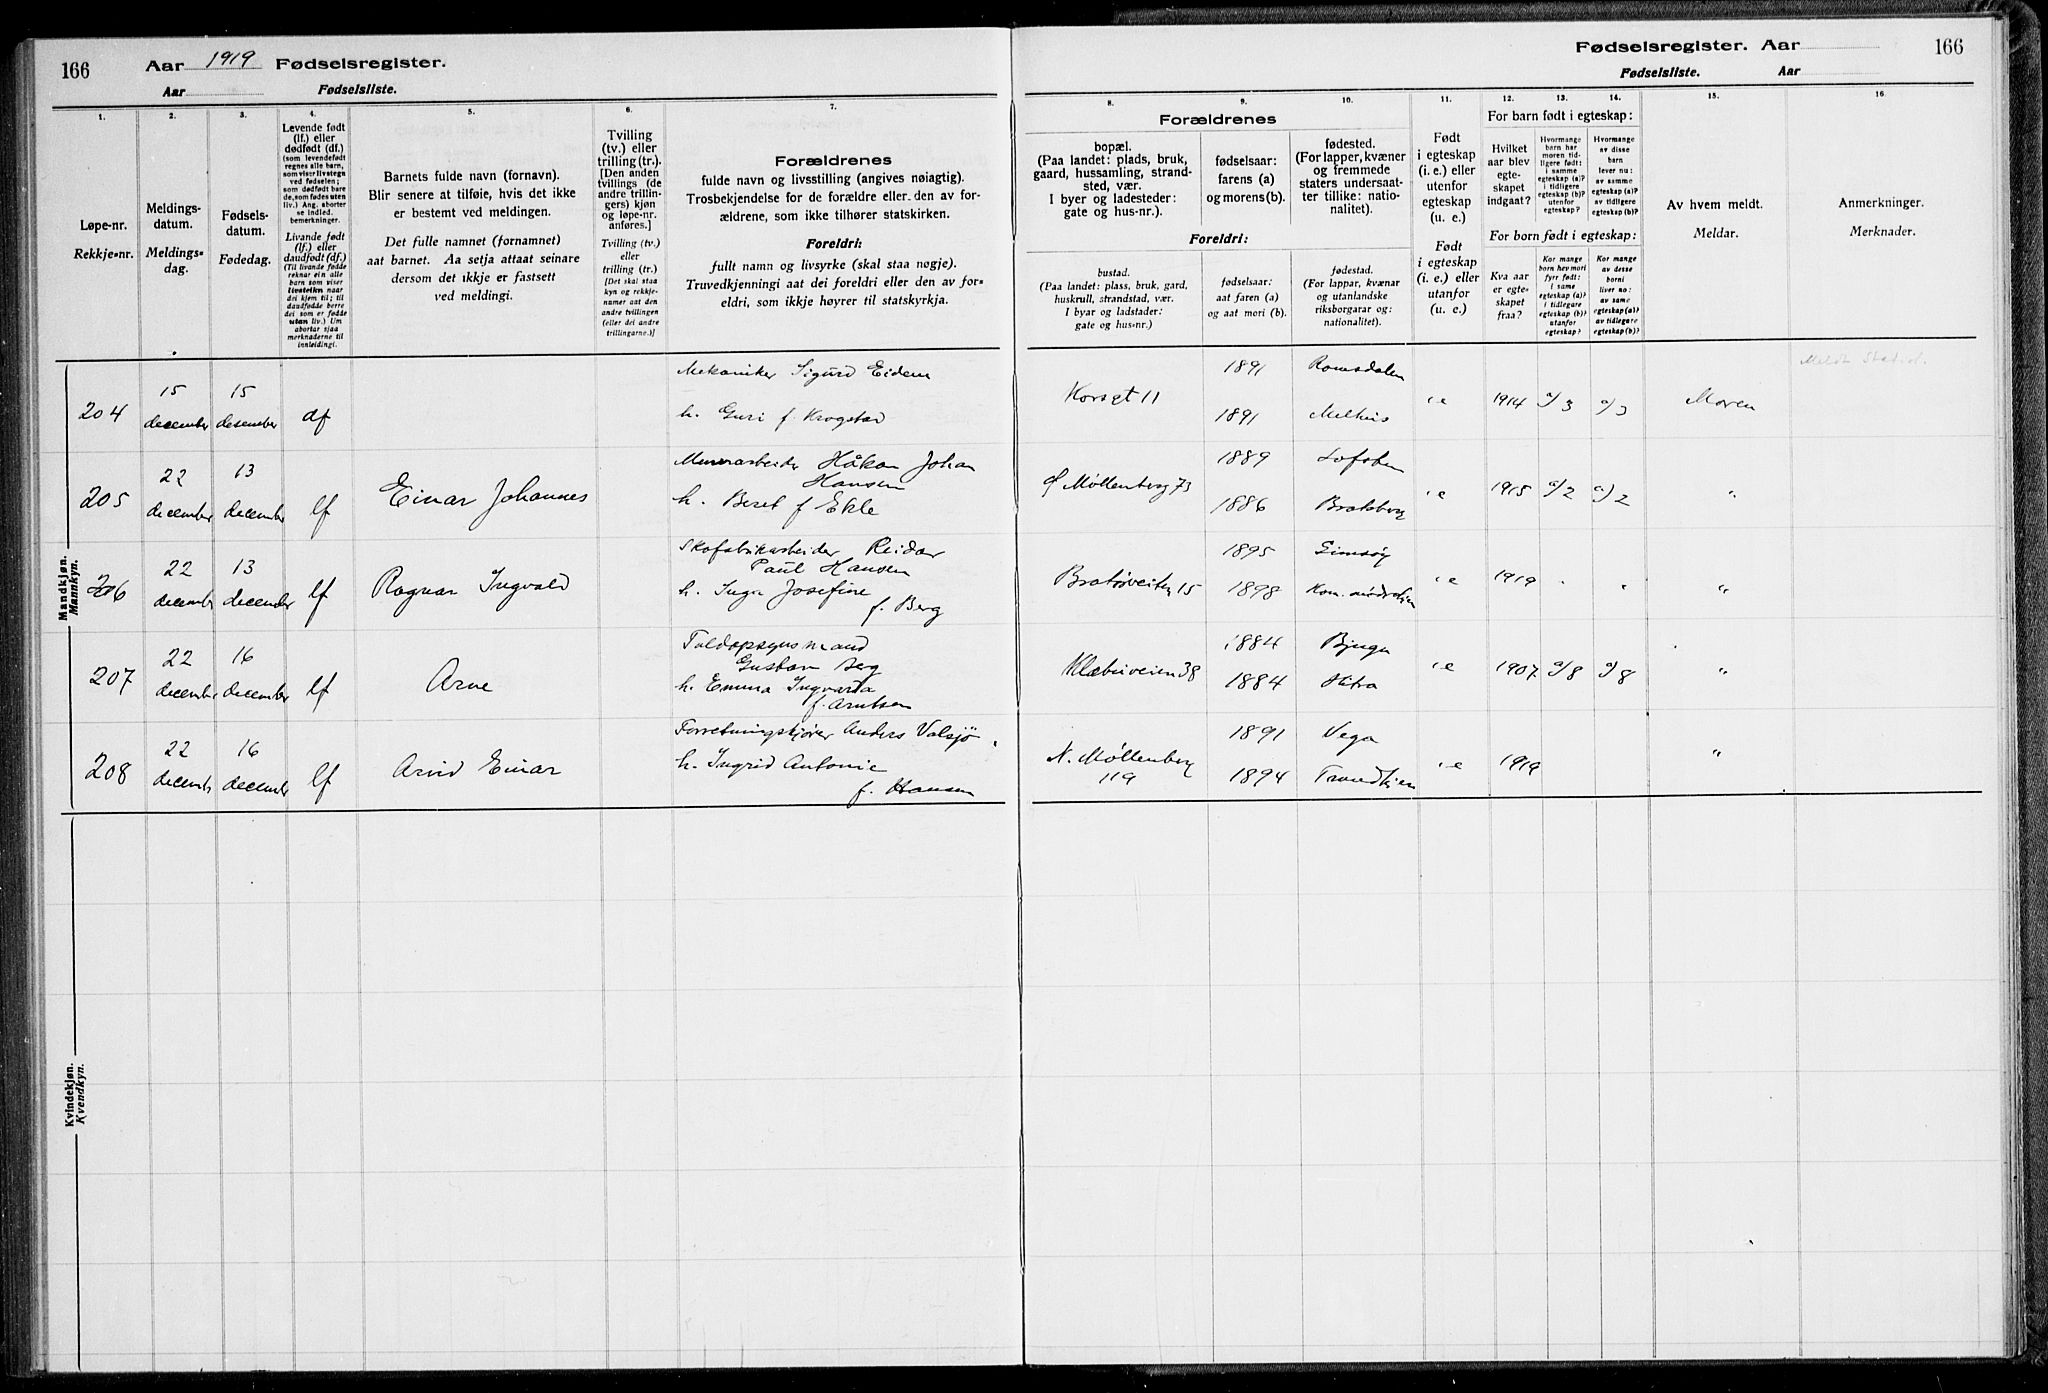 166 Aar 1919 Fødselsregister.
Aar Fødselsliste.
Fødselsregister. Aar 166
Fødselsliste. Aar
1.
Løpe-nr.
Rekkje-nr.
2.
Meldings-
datum.
Meldings-
dag.
3.
Fødsels-
datum.
Fødedag.
4.
Levende født
(lf.) eller
dødfødt (df.)
(som levendefødt
regnes alle barn,
som viser livstegn
ved fødselen;
som dødfødt bare
de, som fødes uten
liv.) Ang. aborter
se indled.
bemerkninger.
Livande født
(lf.) eller
daudfødt (df.)
(Til livande fødde
reknar ein alle
barn som viser
livsteikn naar
dei kjem til; til
daudfødde berre
dei som er fødde
utan liv.) Um
abortar sjaa
merknaderne til
innleidingi.
5.
Barnets fulde navn (fornavn).
Blir senere at tilføie, hvis det ikke
er bestemt ved meldingen.
Det fulle namnet (fornamnet)
aat barnet. Aa setja attaat seinare
dersom det ikkje er fastsett
ved meldingi.
6.
Tvilling
(tv.) eller
trilling (tr.).
[Den anden
tvillings (de
andre trillin-
gers) kjøn
og løpe-nr.
anføres.]
Tvilling (tv.)
eller
trilling (tr.)
[Det skal staa
kyn og rekkje-
numer aat den
andre tvillingen
(eller dei andre
trillingarne.)]
7.
Forældrenes
fulde navn og livsstilling (angives nøiagtig).
Trosbekjendelse for de forældre eller den av for-
ældrene, som ikke tilhører statskirken.
Foreldri:
fullt namn og livsyrke (skal staa nøgje).
Truvedkjenningi aat dei foreldri eller den av for-
eldri, som ikkje høyrer til statskyrkja.
Forældrenes
8.
bopæl.
(Paa landet: plads, bruk,
gaard, hussamling, strand-
sted, vær.
I byer og ladesteder:
gate og hus-nr.).
9.
fødselsaar:
farens (a)
og morens (b).
10.
fødested.
(For lapper, kvæner
og fremmede
staters undersaat-
ter tillike: natio-
nalitet).
Foreldri:
bustad.
(Paa landet: plass, bruk, gard,
huskrull, strandstad, vær.
I byar og ladstader:
gate og hus-nr.)
fødselsaar:
aat faren (a)
og aat mori (b).
fødestad.
(For lappar, kvænar
og utanlandske
riksborgarar og:
nationalitet).
11.
Født
i egteskap
(i. e.) eller
utenfor
egteskap
(u. e.)
Født
i egteskap
(i. e.) eller
utanfor
(u. e.)
For barn født i egteskap:
12.
Hvilket
aar blev
egte-
skapet
indgaat?
13.
Hvormange
barn har
moren tid-
ligere født:
i samme
egteskap (a)?
i tidligere
egteskap (b)?
utenfor
egteskap?
14.
Hvormange
av disse
barn
lever nu:
av samme
egteskap (a)?
av tidligere
egteskap (b)?
For born født i egteskap:
Kva aar
er egte-
skapet
fraa?
Kor mange
born hev mori
fyrr født:
i same
egteskap (a)?
i tidlegare
egteskap (b)?
utanfor
egteskap?
Kor mange
av desse
borni
liver no:
av same
egteskap (a)?
av tidlegare
egteskap (b)?
15.
Av hvem meldt.
Meldar.
16.
Anmerkninger.
Merknader.
Mandkjøn.
Mannkyn.
204 15 december 15 desember df
Mekaniker Sigurd Eidem
h. Guri f. Krogstad
Korsgt 11 1891 Romsdalen
1891 Melhus
i.e 1914 a/3 a/3 Moren
205 22 december 13 december lf Einar Johannes
Murerarbeider Håkon Johan
Hansen
h. Beret f Ekle
Ø Møllenberg 73 1889 Lofoten
1886 Bratsberg
i.e 1915 a/2 a/2 "
206 22 december 13 december lf Ragnar Ingvald
Skofabrikarbeider Reidar
Paul Hansen
h. Inga Josefine
f. Berg
Bratørveiten 15 1895 Gimsøy
1898
i.e 1919 " "
207 22 december 16 december lf Arne
Toldopsynsmand
Gustav Berg
h. Emma Ingvarda
f. Arntsen
Klæbuveien 38 1884 Bjugn
1884 Hitra
i.e 1907 a/8 a/8 "
208 22 decemb 16 december lf Arvid Einar
Forretningskjører Anders Valsjø
h. Ingrid Antonie
f. Hansen
N. Møllenberg
119
1891 Vega
1894 Trondhjem
i.e 1919 "
Kvindekjøn.
Kvendkyn.